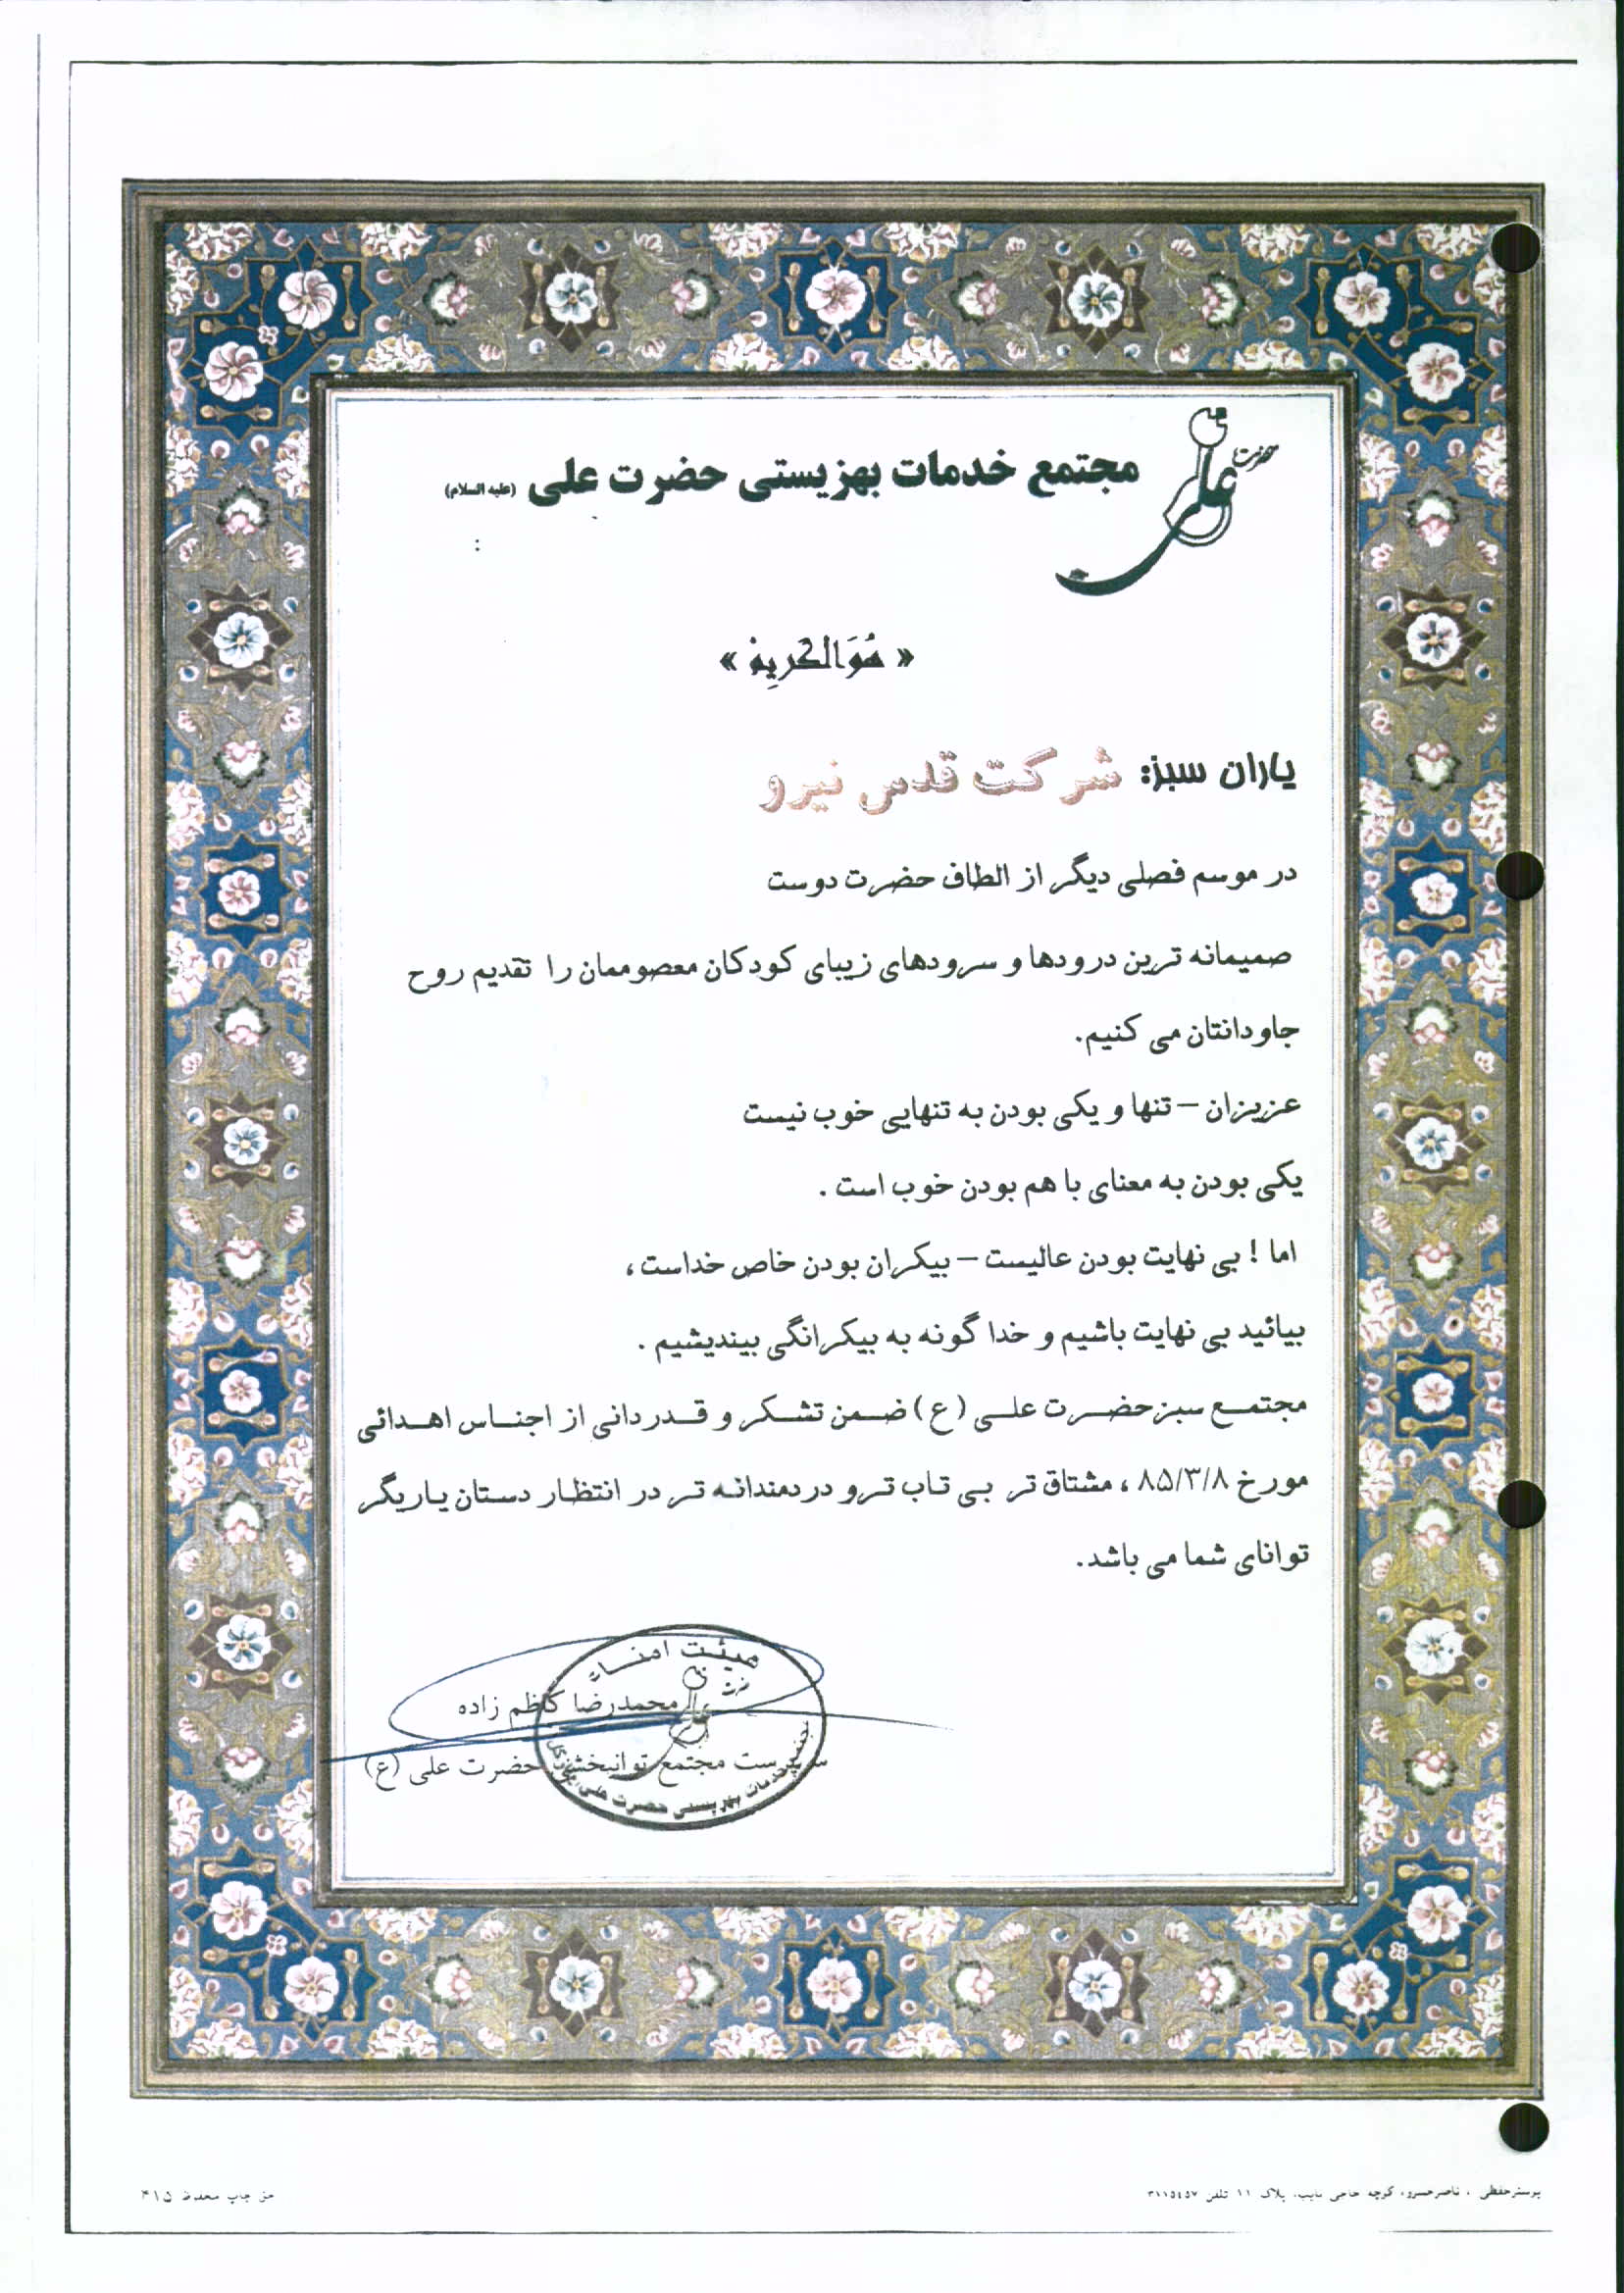 حضرت علی
مجتمع خدمات بهزیستی حضرت علی (علیه السلام)
:
« هُوَالکریم »
یاران سبز: شرکت قدس نیرو
در موسم فصلی دیگر از الطاف حضرت دوست
صمیمانه ترین درودها و سرودهای زیبای کودکان معصوممان را تقدیم روح
جاودانتان می کنیم.
عزیزان – تنها و یکی بودن به تنهایی خوب نیست
یکی بودن به معنای با هم بودن خوب است .
اما ! بی نهایت بودن عالیست – بیکران بودن خاص خداست ،
بیائید بی نهایت باشیم و خدا گونه به بیکرانگی بیندیشیم .
مجتمع سبز حضرت علی (ع) ضمن تشکر و قدردانی از اجناس اهدائی
مورخ ۸۵/۳/۸ ، مشتاق تر بی تاب تر و دردمندانه تر در انتظار دستان یاریگر
توانای شما می باشد.
هیئت امناء
محمدرضا کاظم زاده
سرپرست مجتمع توانبخشی حضرت علی (ع)
مجتمع خدمات بهزیستی حضرت علی
پوسترحفظی ، ناصرخسرو، کوچه حاجی نایب، پلاک ۱۱ تلفن ۳۱۱۵۴۵۷
حق چاپ محفوظ ۴۱۵